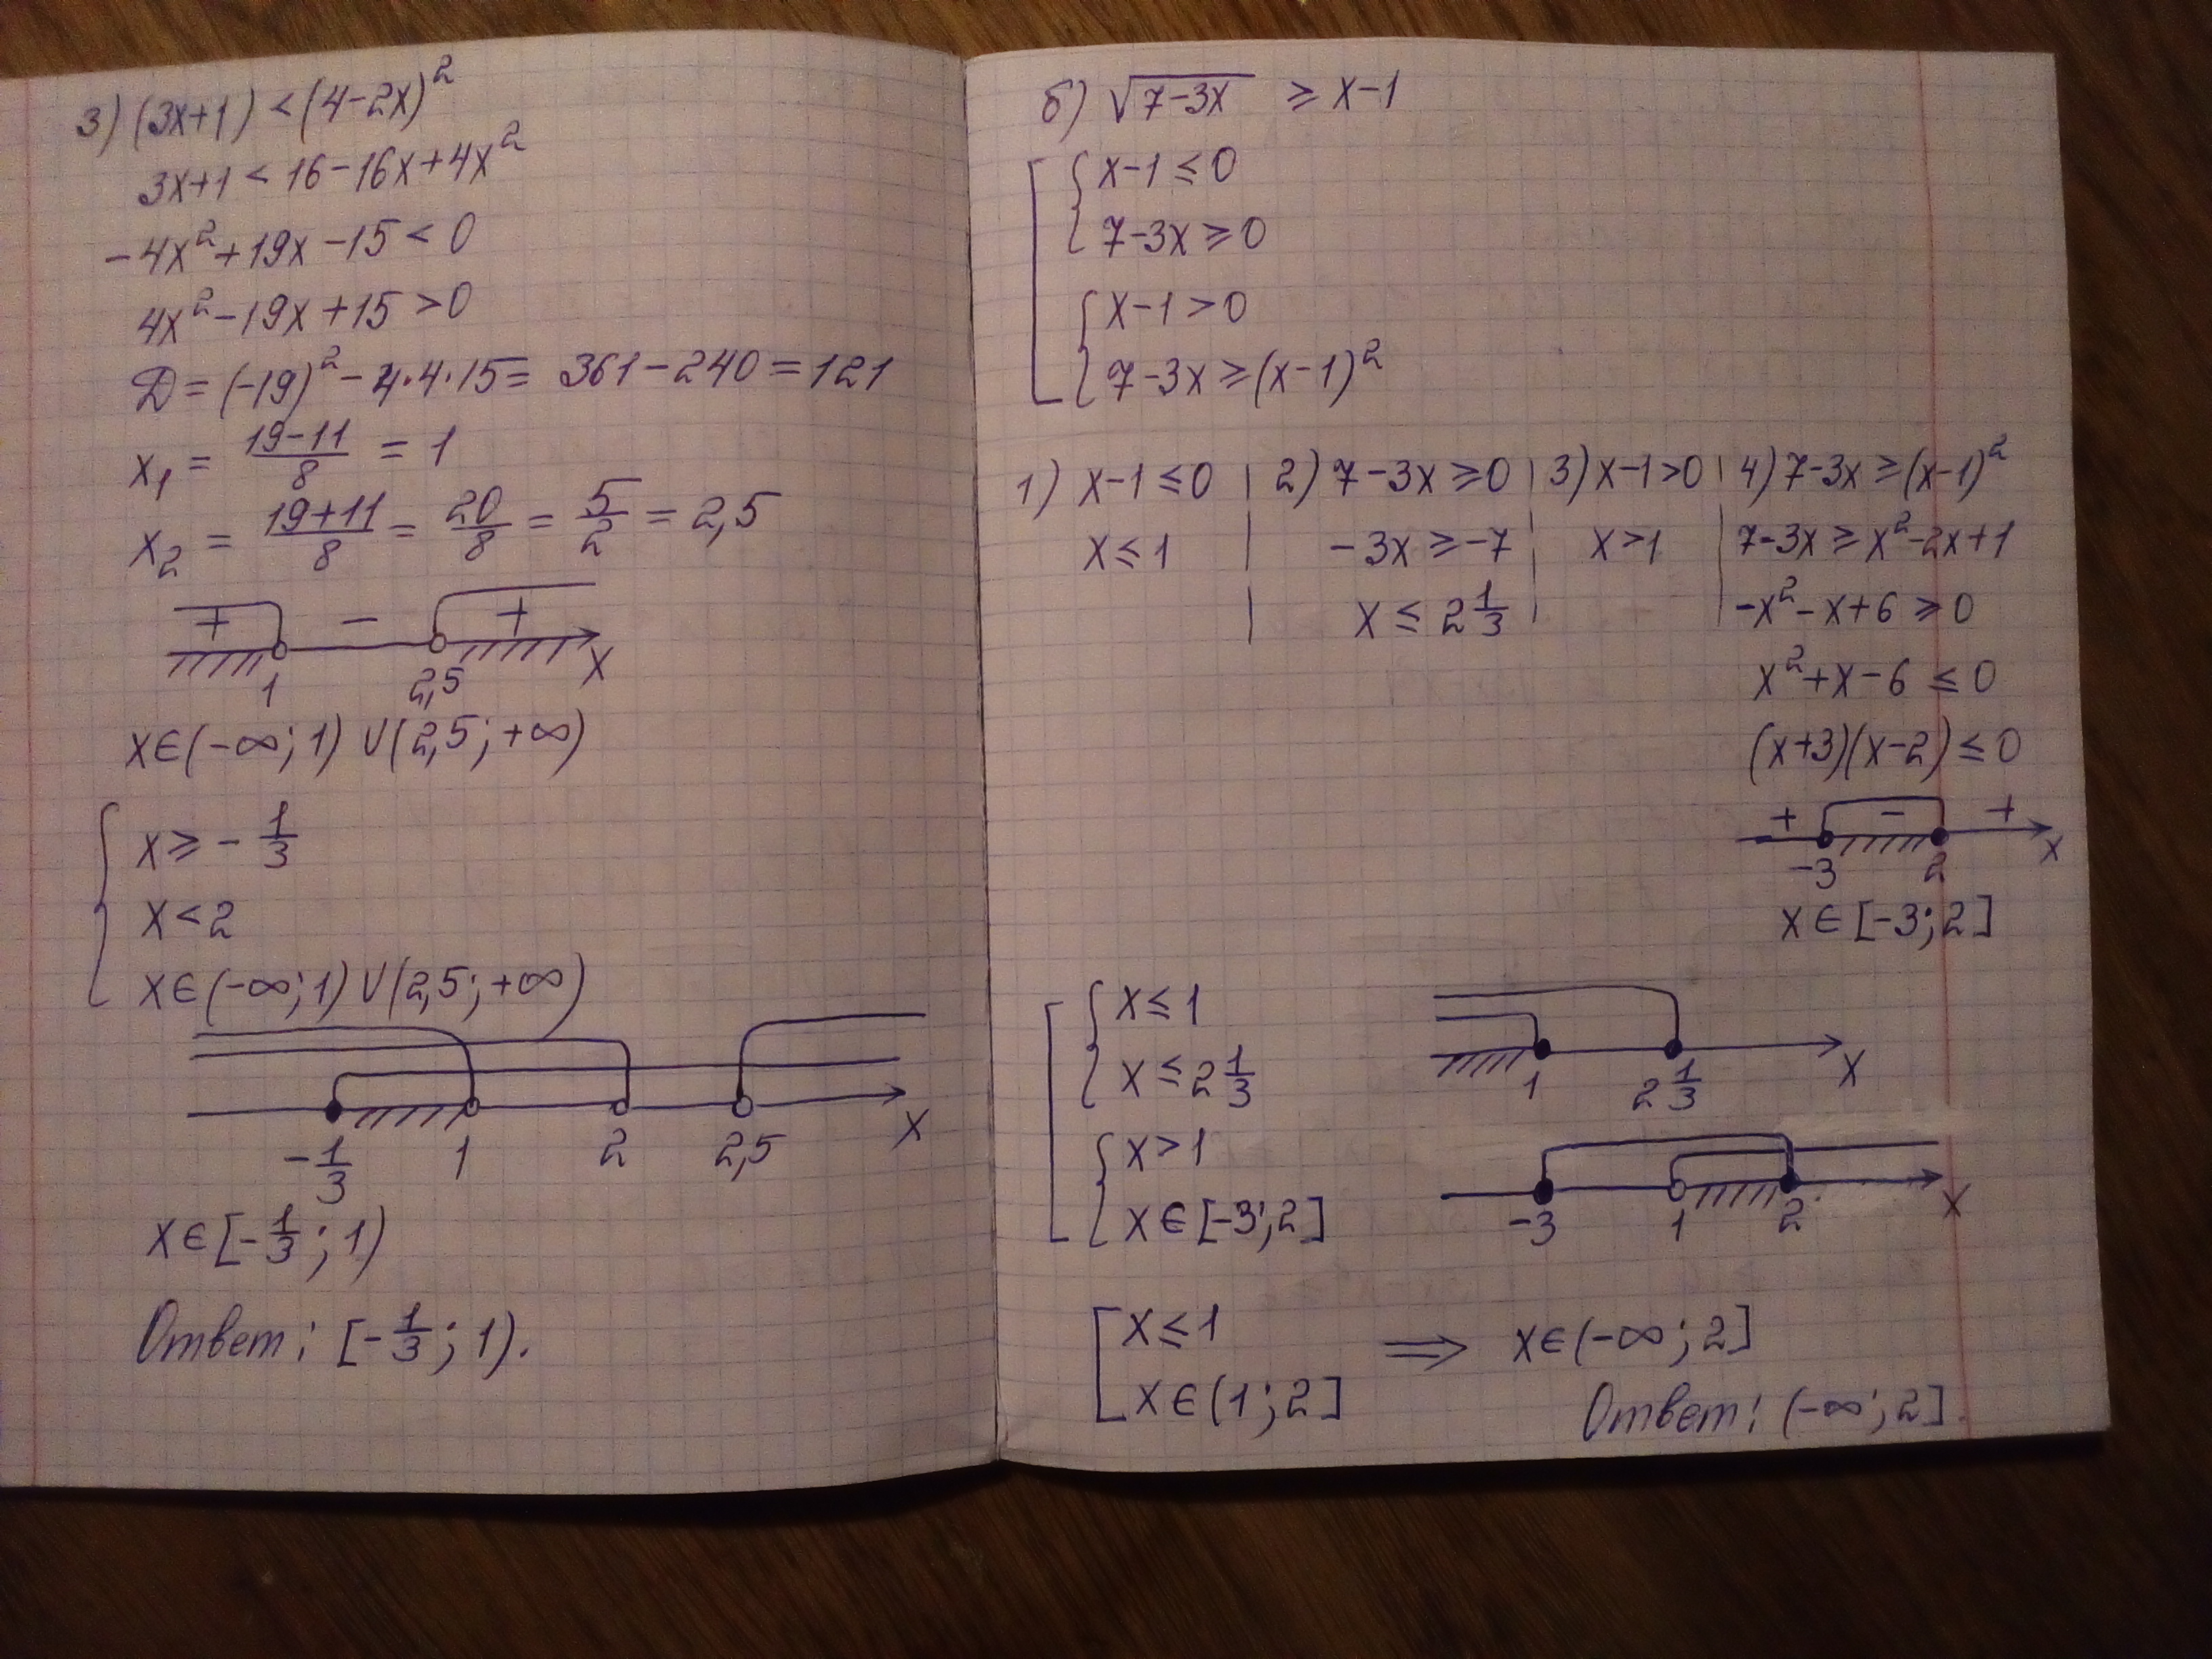 3) (3x+1) < (4-2x)²
3x+1 < 16-16x+4x²
-4x²+19x-15 < 0
4x²-19x+15 > 0
D = (-19)² - 4·4·15 = 361-240 = 121
x₁ = (19-11)/8 = 1
x₂ = (19+11)/8 = 20/8 = 5/2 = 2,5
+ − +
1 2,5 x
x∈(-∞; 1) ∪ (2,5; +∞)
{ x ≥ - 1/3
x < 2
x∈(-∞; 1) ∪ (2,5; +∞)
-1/3 1 2 2,5 x
x∈[-1/3; 1)
Ответ: [-1/3; 1).
б) √(7-3x) ≥ x-1
[ { x-1 ≤ 0
7-3x ≥ 0
{ x-1 > 0
7-3x ≥ (x-1)²
1) x-1 ≤ 0 | 2) 7-3x ≥ 0 | 3) x-1 > 0 | 4) 7-3x ≥ (x-1)²
x ≤ 1 | -3x ≥ -7 | x > 1 | 7-3x ≥ x²-2x+1
| x ≤ 2 1/3 | | -x²-x+6 ≥ 0
x²+x-6 ≤ 0
(x+3)(x-2) ≤ 0
+ − +
-3 2 x
x∈[-3; 2]
[ { x ≤ 1
x ≤ 2 1/3
1 2 1/3 x
{ x > 1
x∈[-3; 2]
-3 1 2 x
[ x ≤ 1
x∈(1; 2]
⟹ x∈(-∞; 2]
Ответ: (-∞; 2].